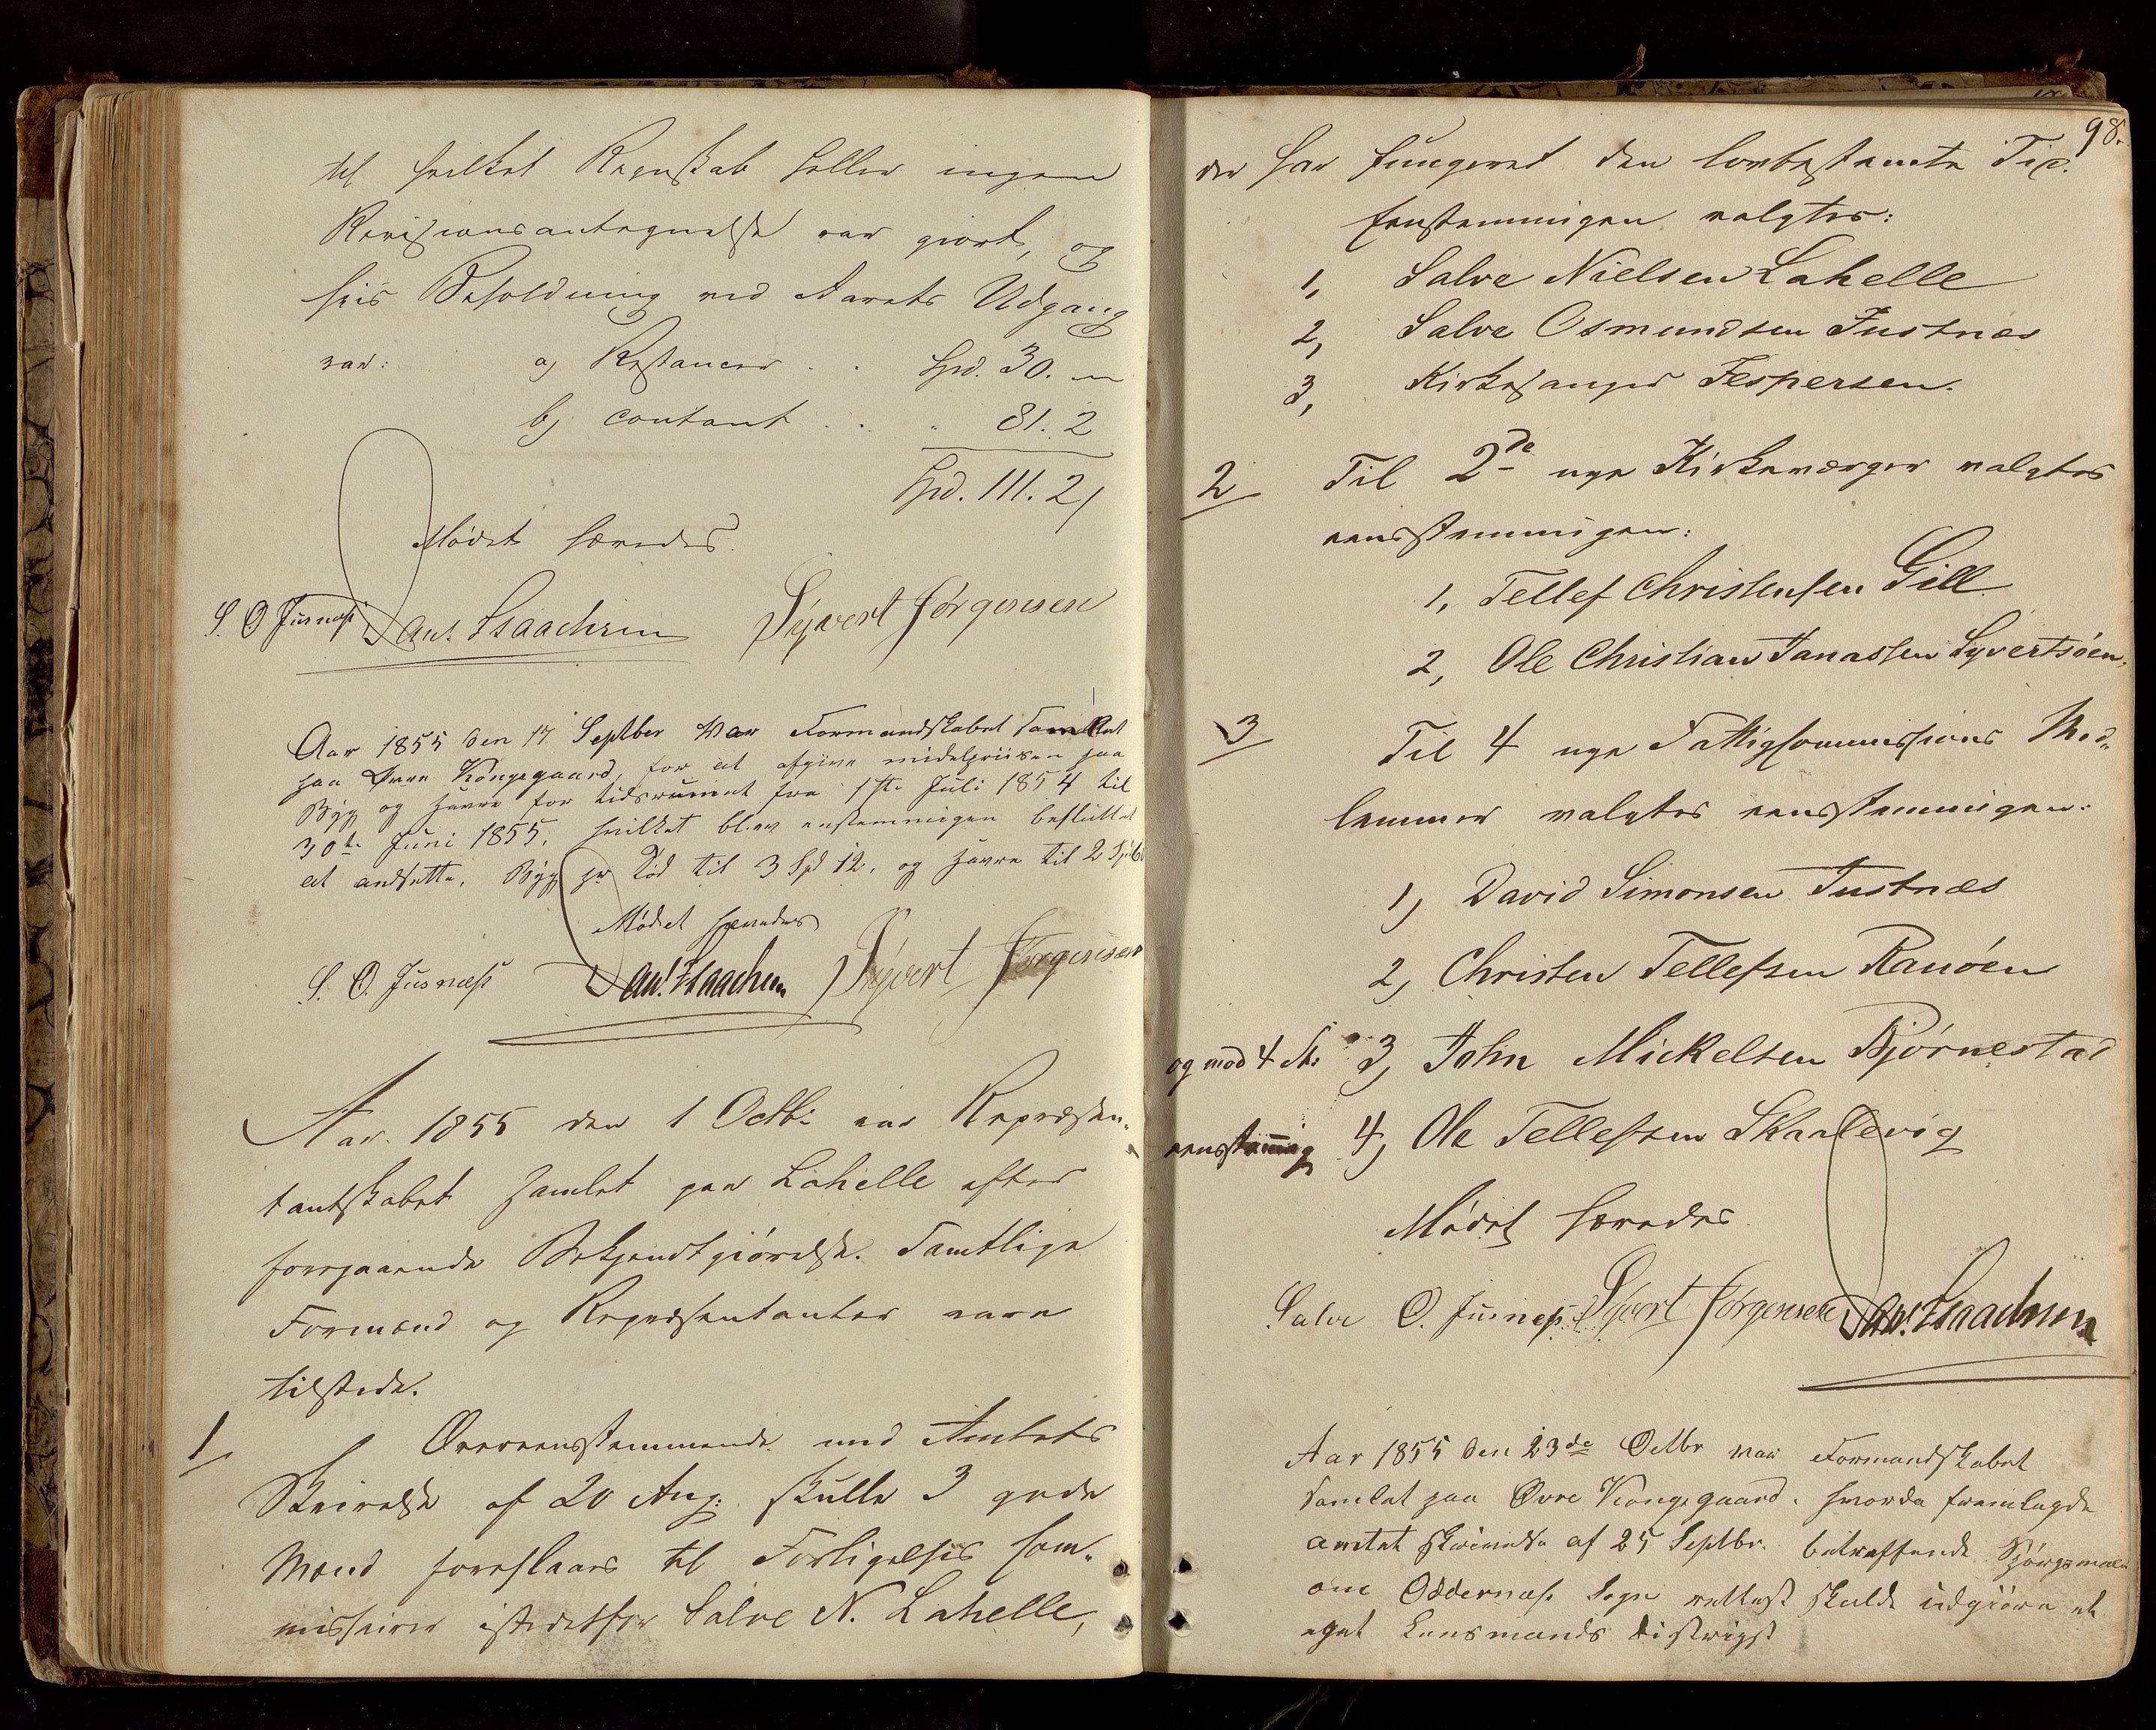 til hvilket Regnskab heller ingen
Revisionsantegnelse var giort, og
hvis Beholdning ved Aarets Udgang
var: a) Restancer . . Spd. 30. "
b) contant . . " 81. 2
Spd. 111. 2
Mødet hævedes.
S. O. Jusnæs Dan. Isaachsen Syvert Jørgensen
Aar 1855 den 17 Septber var Formandskabet samlet
paa Øvre Kongsgaard, for at afgive midelpriisen paa
Byg og Havre for tidsrummet fra 1ste Juli 1854 til
30te Juni 1855, hvilket blev enstemmigen besluttet
at andsette, Byg pr Tød til 3 Spd 12, og Havre til 2 Spd
Mødet hævedes
S. O. Jusnæs Dan. Isaachsen Syvert Jørgensen
Aar 1855 den 1 Octb: var Repræsen-
tantskabet samlet paa Lahelle efter
foregaaende Bekjendtgiørelse. Samtlige
Formænd og Repræsentanter vare
tilstede.
1, Overeensstemmende med Amtets
Skrivelse af 20 Aug: skulle 3 gode
Mænd foreslaaes til Forligelses Com-
missairer istedetfor Salve N. Lahelle,
98.
der har fungeret den lovbestemte Tid.
Eenstemmigen valgtes:
1, Salve Nielsen Lahelle
2, Salve Osmundsen Justnæs
3, Kirkesanger Jespersen.
2 Til 2de nye Kirkeværger valgtes
eensstemmigen:
1, Tellef Christensen Gill
2, Ole Christian Janassen Syvertsøen.
3 Til 4 nye Fattigcommissions Med-
lemmer valgtes eensstemmigen:
1) David Simonsen Justnæs
2) Christen Tellefsen Randøen
og med 4 St: 3) John Mickelsen Bjørnestad
eensstemig 4) Ole Tellefsen Skaalevig
Mødet hævedes
Salve O. Jusnæs. Syvert Jørgensen Dan. Isaachsen
Aar 1855 den 23de Octbr var Formandskabet
samlet paa Øvre Kongsgaard. hvorda fremlagde
amtet skrivelse af 25 Septbr. betreffende Spørgsmaal
om Oddernæs Sogn rettest skulde udgiøre et
eget Lensmands distrigt